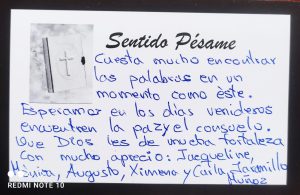 Sentido Pésame
Cuesta mucho encontrar
las palabras en un
momento como éste.
Esperamos en los días venideros
encuentren la paz y el consuelo.
Que Dios les de mucha fortaleza
Con mucho aprecio: Jacqueline,
Augusto, Ximena y Carla Jaramillo
Muñoz
REDMI NOTE 10